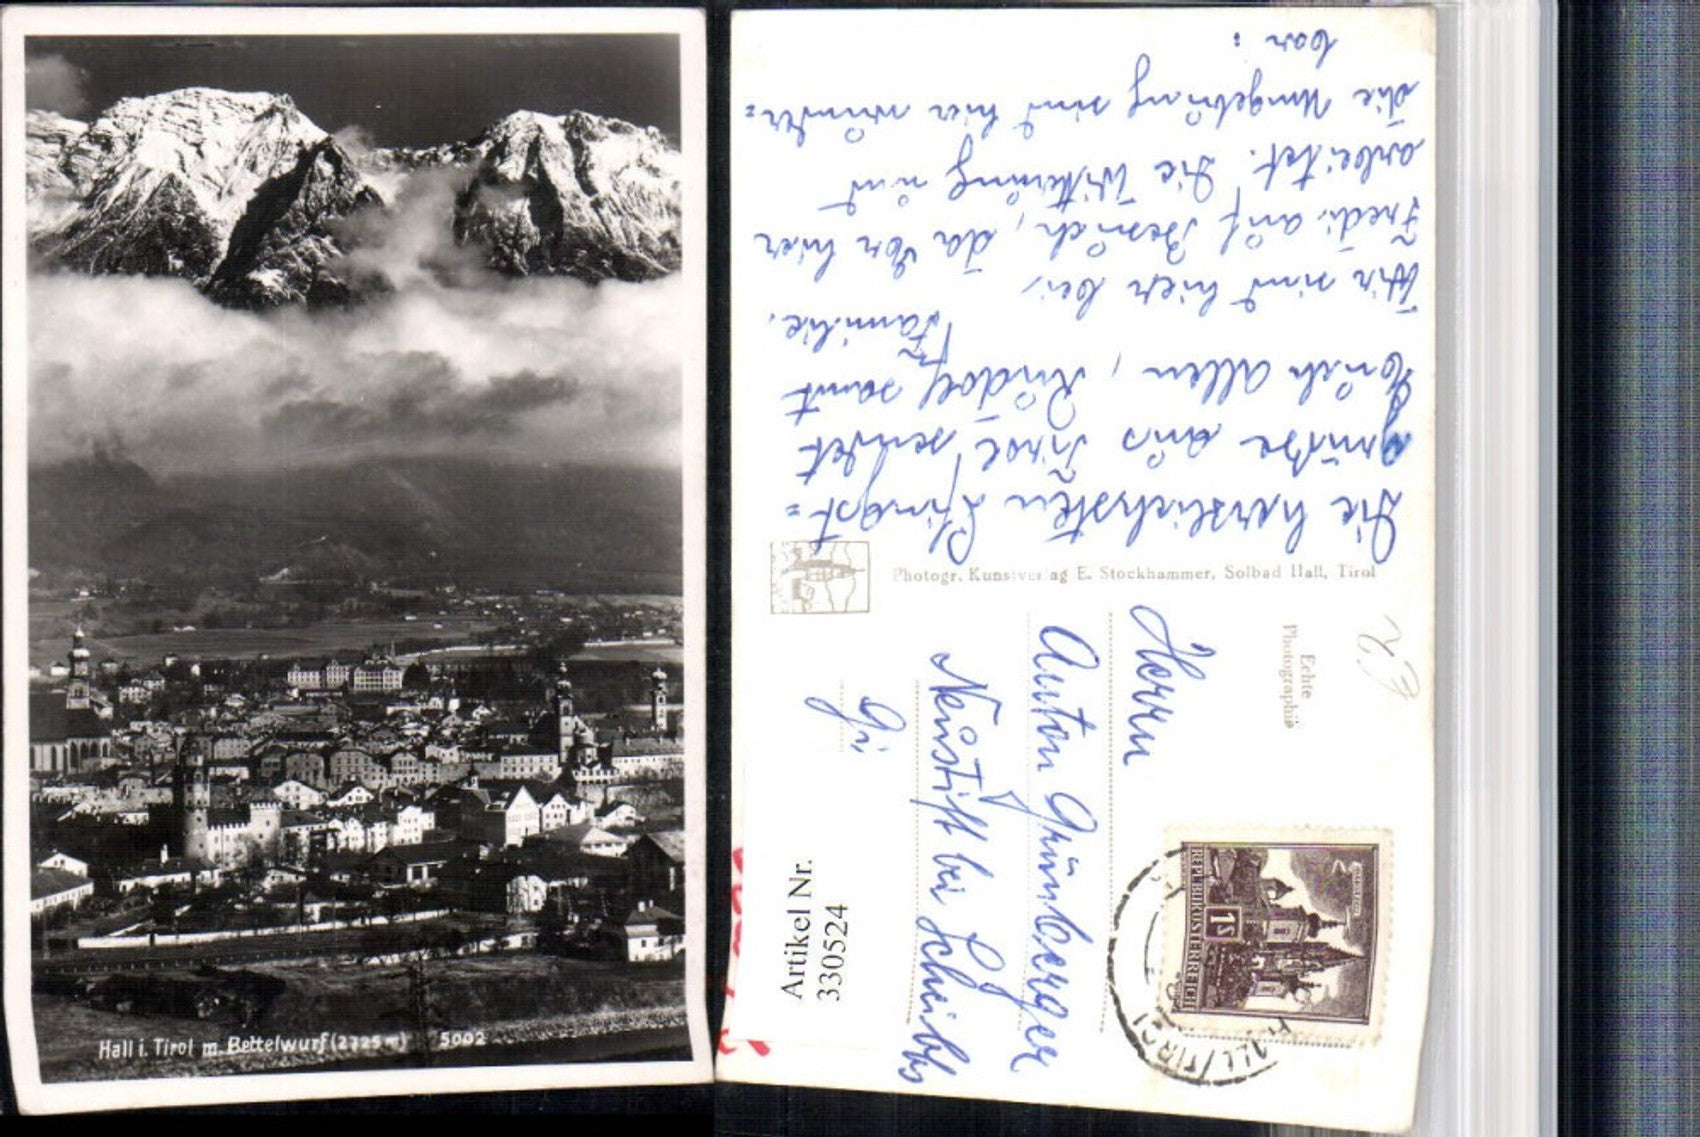 Hall i. Tirol m. Bettelwurf (2725 m) 5002
Die herzlichsten Pfingst=
grüße aus Tirol sendet
Euch allen, Rudolf samt
Familie.
Wir sind hier bei
Fredi auf Besuch, da Er hier
arbeitet. Die Witterung und
die Umgebung sind hier wunder=
bar.
Photogr. Kunstverlag E. Stockhammer, Solbad Hall, Tirol
Echte
Photographie
Herrn
Anton Grünberger
Neustift bei Scheibbs
REPUBLIK ÖSTERREICH
1 S
HALL / TIROL
Artikel Nr.
330524